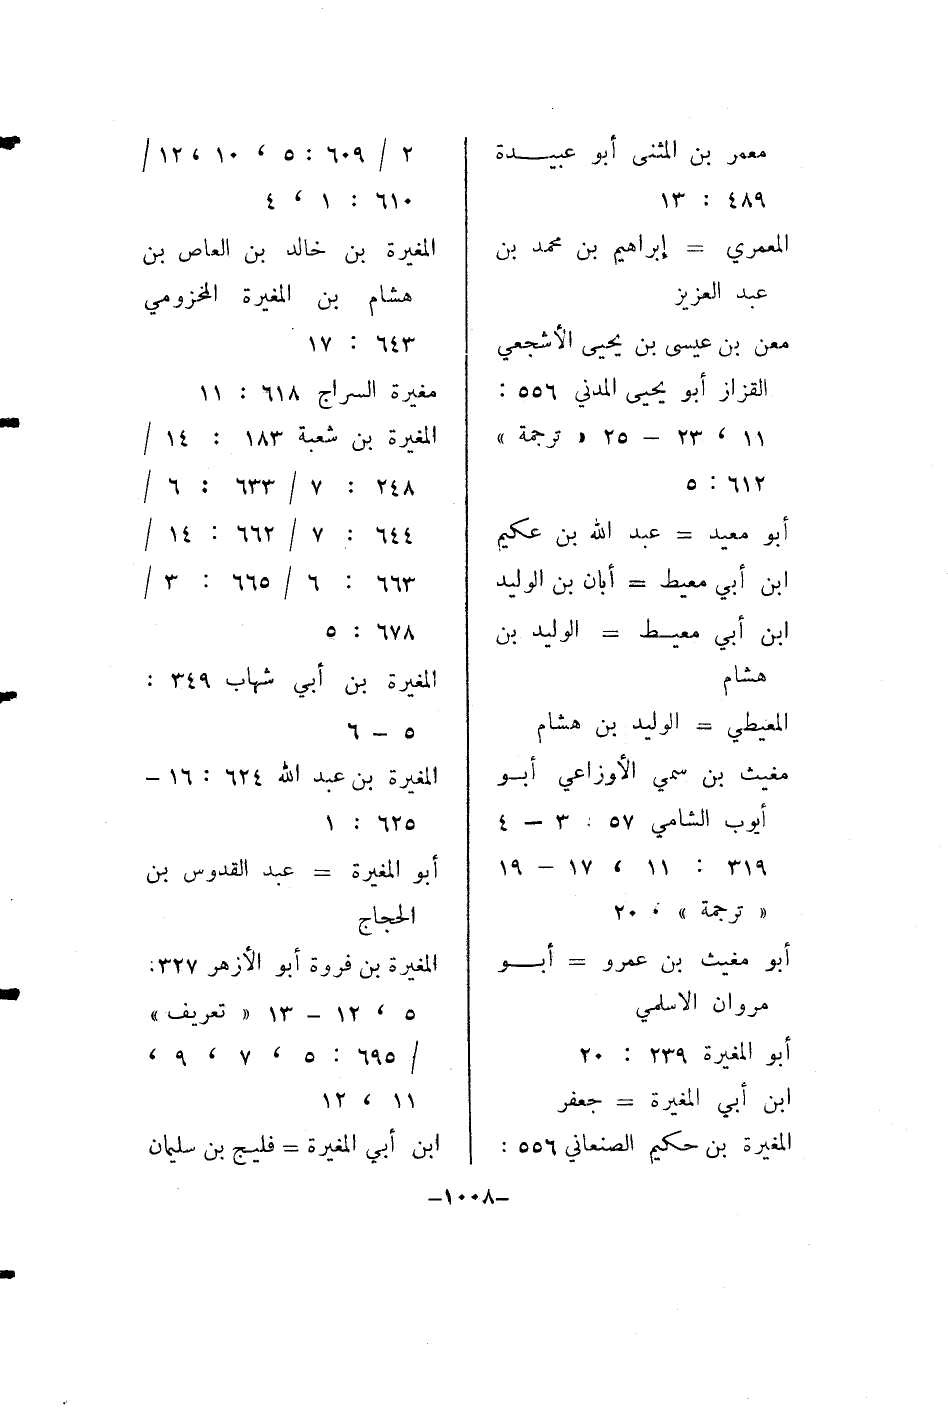 معمر بن المثنى أبو عبيـــــدة
٤٨٩ : ١٣
المعمري = إبراهيم بن محمد بن
عبد العزيز
معن بن عيسى بن يحيى الأشجعي
القزاز أبو يحيى المدني ٥٥٦ :
١١ ، ٢٣ – ٢٥ « ترجمة »
٦١٢ : ٥
أبو معيد = عبد الله بن عكيم
ابن أبي معيط = أبان بن الوليد
ابن أبي معيــط = الوليد بن
هشام
المعيطي = الوليد بن هشام
مغيث بن سمي الأوزاعي أبــو
أيوب الشامي ٥٧ : ٣ – ٤
٣١٩ : ١١ ، ١٧ – ١٩
« ترجمة » ، ٢٠
أبو مغيث بن عمرو = أبـــو
مروان الاسلمي
أبو المغيرة ٢٣٩ : ٢٠
ابن أبي المغيرة = جعفر
المغيرة بن حكيم الصنعاني ٥٥٦ :
٢ / ٦٠٩ : ٥ ، ١٠ ، ١٢ /
٦١٠ : ١ ، ٤
المغيرة بن خالد بن العاص بن
هشام بن المغيرة المخزومي
٦٤٣ : ١٧
مغيرة السراج ٦١٨ : ١١
المغيرة بن شعبة ١٨٣ : ١٤ /
٢٤٨ : ٧ / ٦٣٣ : ٦ /
٦٤٤ : ٧ / ٦٦٢ : ١٤ /
٦٦٣ : ٦ / ٦٦٥ : ٣ /
٦٧٨ : ٥
المغيرة بن أبي شهاب ٣٤٩ :
٥ – ٦
المغيرة بن عبد الله ٦٢٤ : ١٦ –
٦٢٥ : ١
أبو المغيرة = عبد القدوس بن
الحجاج
المغيرة بن فروة أبو الأزهر ٣٢٧:
٥ ، ١٢ – ١٣ « تعريف »
/ ٦٩٥ : ٥ ، ٧ ، ٩ ،
١١ ، ١٢
ابن أبي المغيرة = فليح بن سليمان
–١٠٠٨–